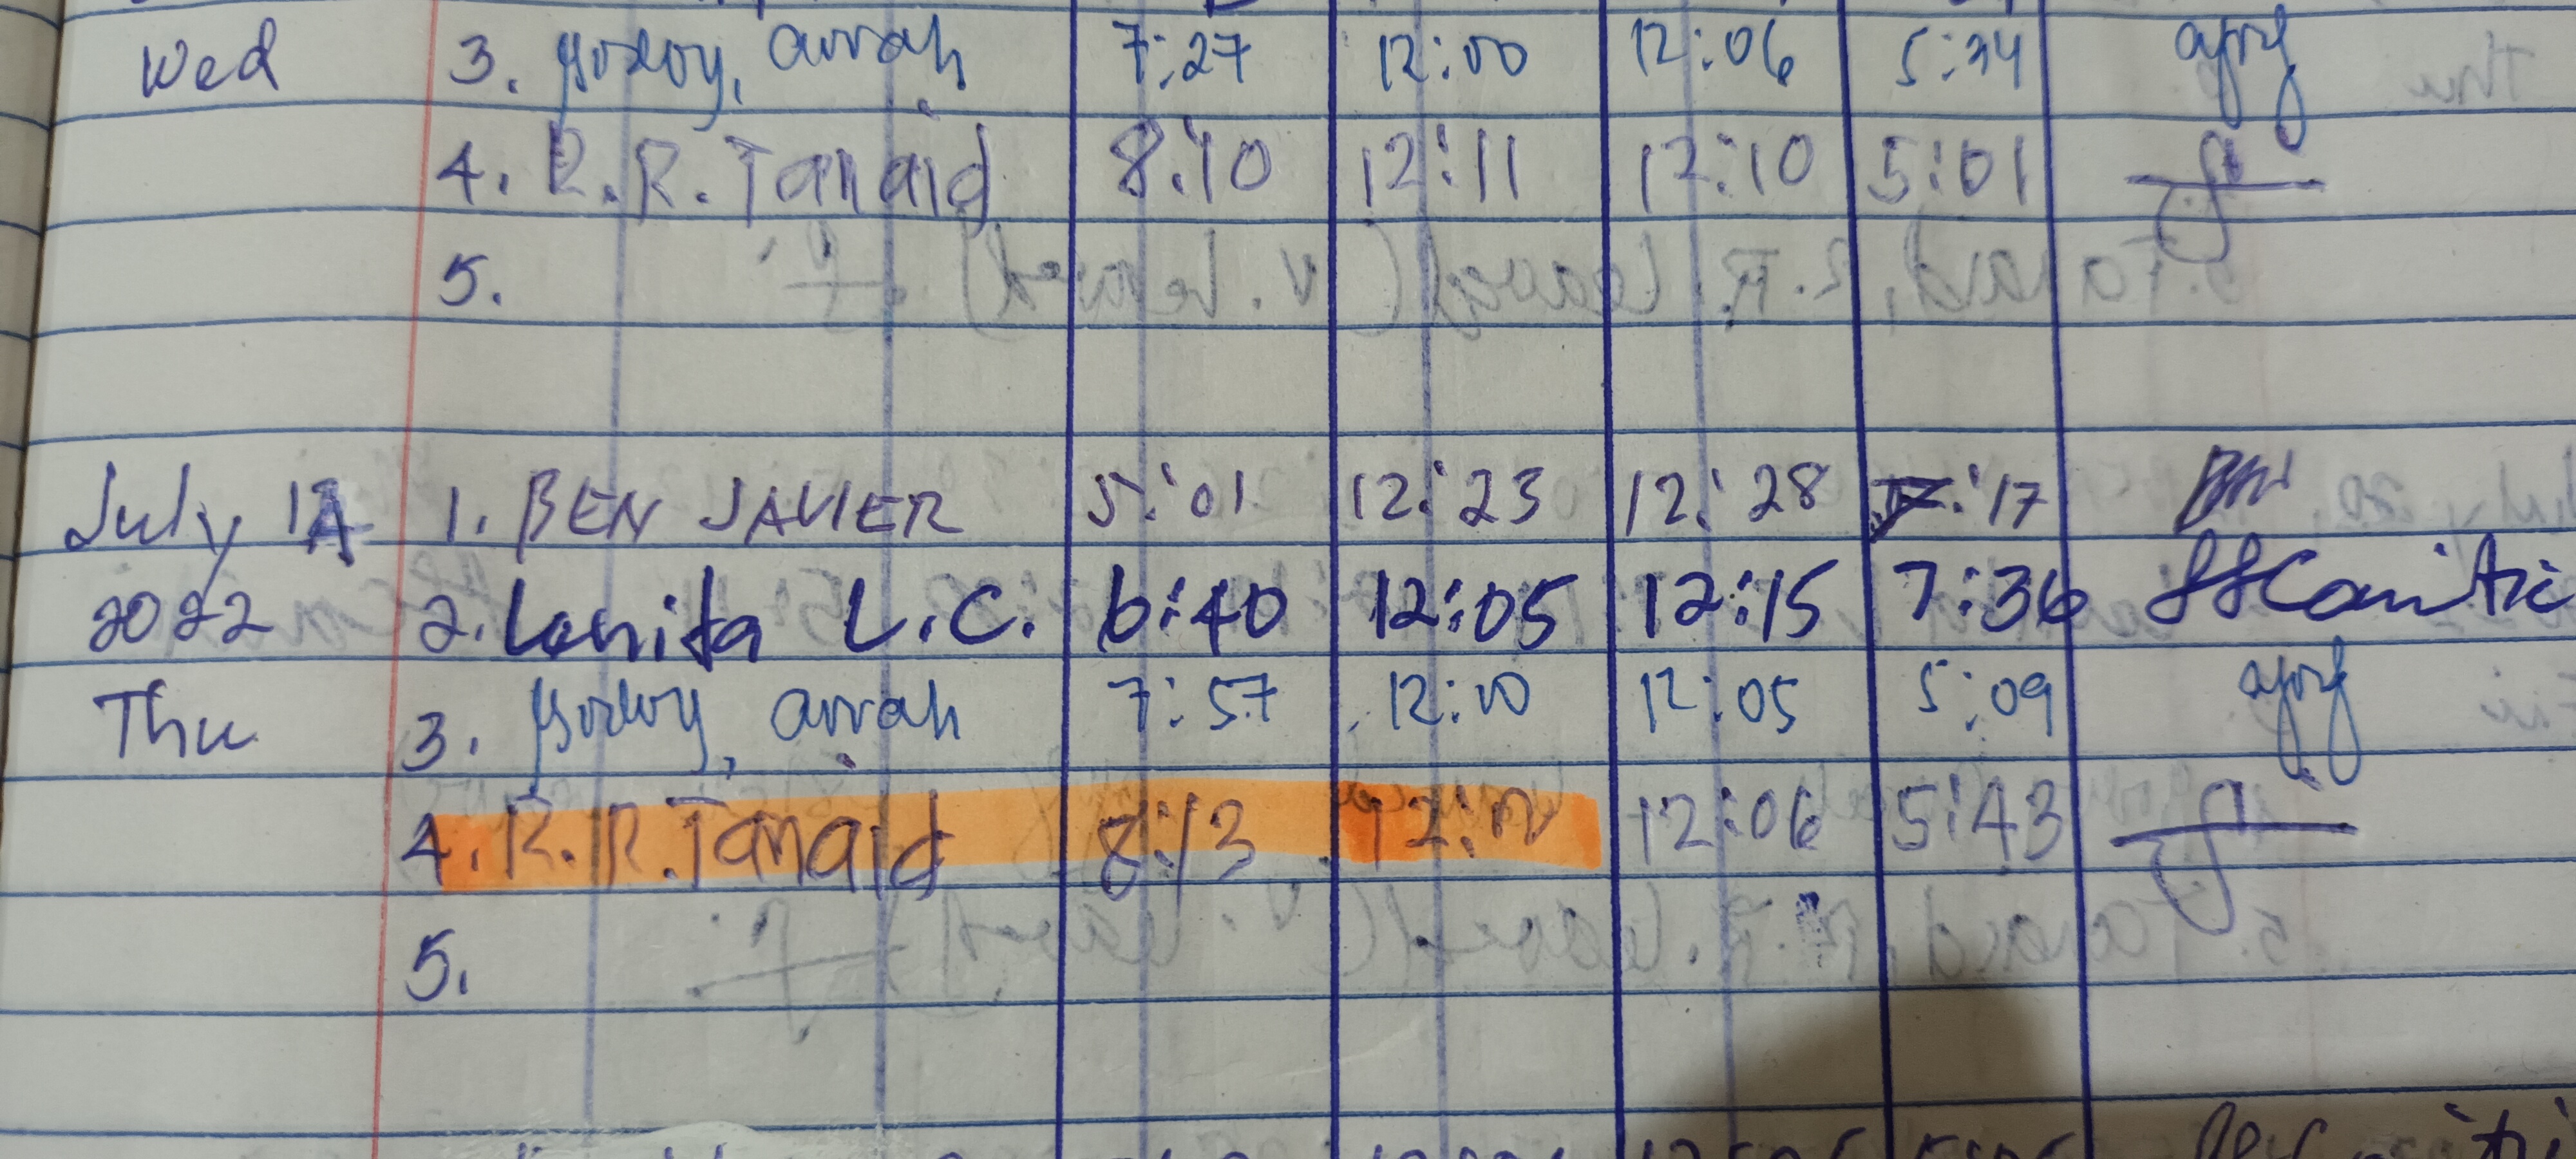 Wed 3. Godoy, arrah 7:27 12:00 12:06 5:34
4. R.R. Tanaid 8:10 12:11 12:10 5:01
5.
July 14 1. BEN JAVIER 5:01 12:23 12:28 :17
2022 2. Lenita L.C. 6:40 12:05 12:15 7:36
Thu 3. Godoy, arrah 7:57 12:00 12:05 5:09
4. R.R. Tanaid 8:13 12:00 12:06 5:43
5.